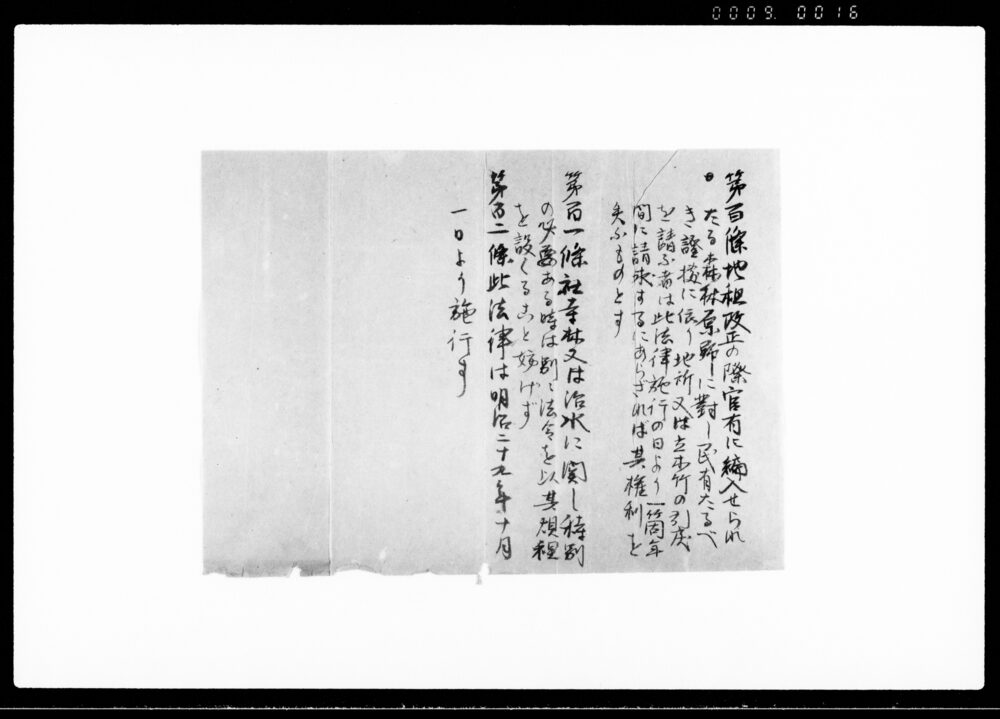 0009 0016
第百條地租改正の際官有に編入せられ
たる森林原野に對し民有たるべ
き證據に依り地所又は立木竹の引戻
を請ふ者は此法律施行の日より一箇年
間に請求するにあらざれば其權利を
失ふものとす
第百一條社寺林又は治水に関し特別
の必要ある時は別に法令を以其規程
を設くること妨げず
第百二條此法律は明治二十九年十月
一日より施行す